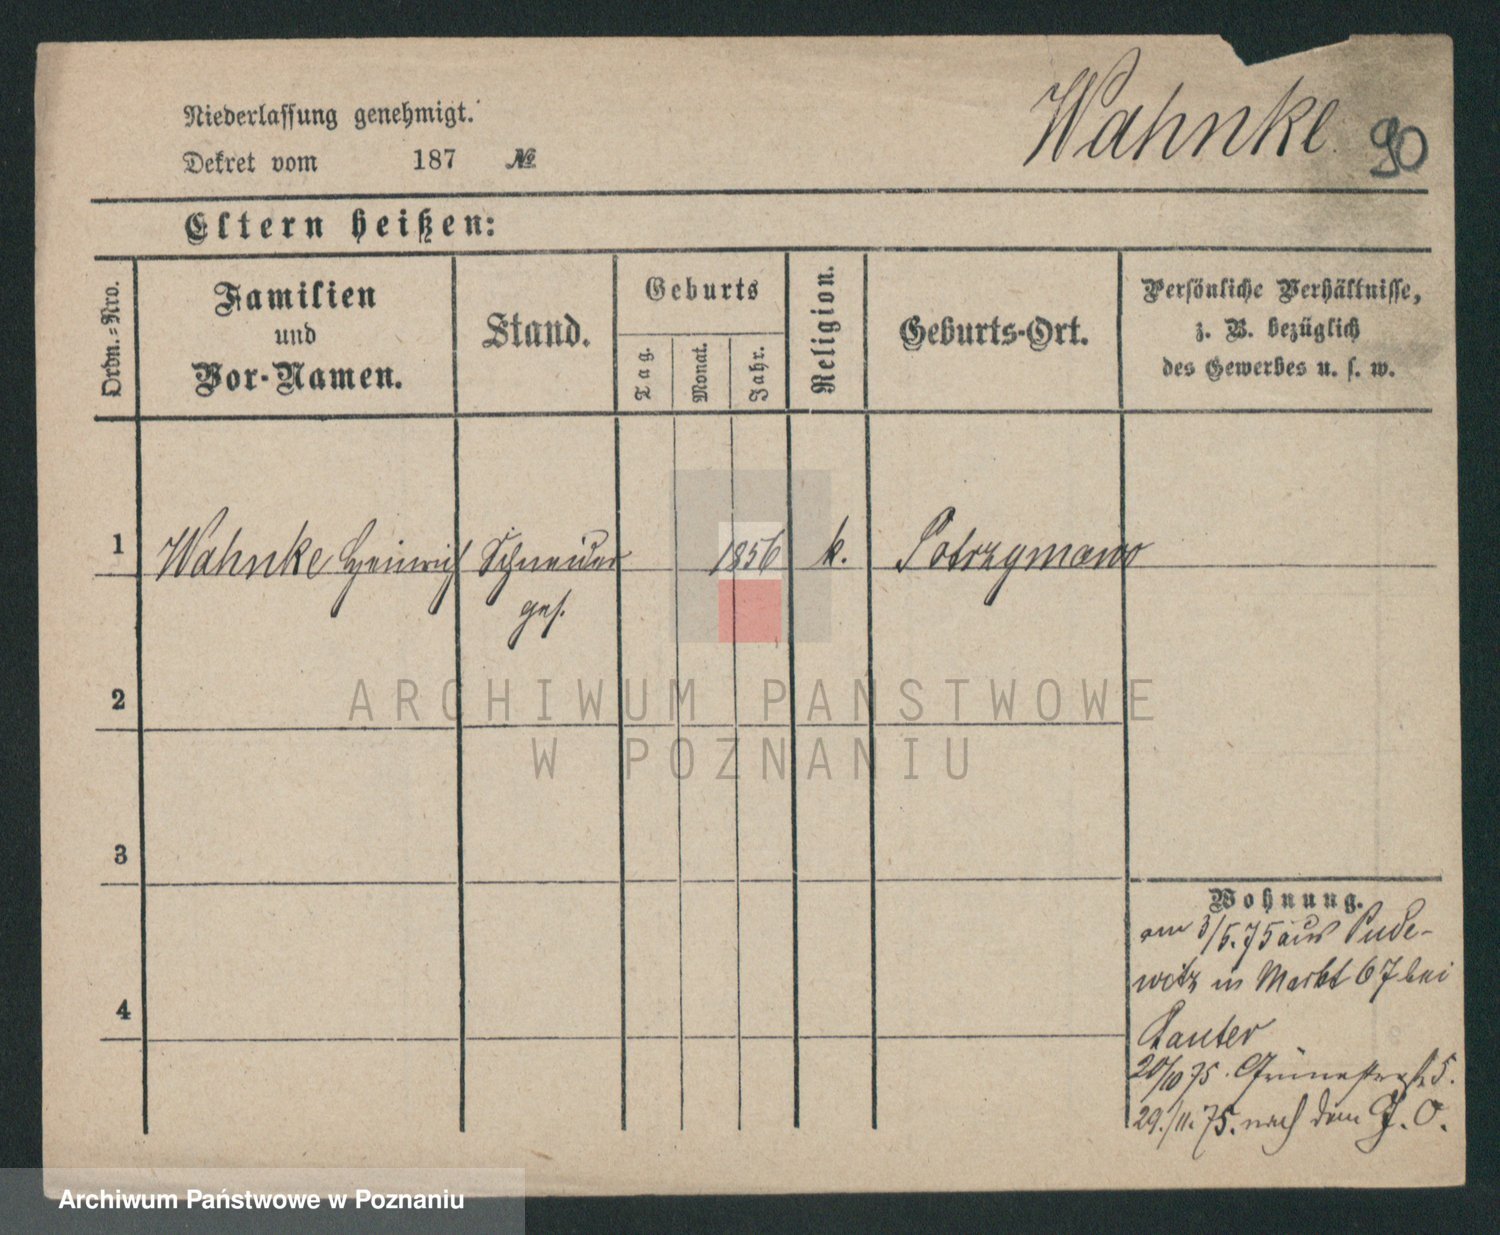 Niederlassung genehmigt.
Dekret vom 187 №
Wahnke
90
Eltern heißen:
Ordn.-Nro.
Familien
und
Vor-Namen.
Stand.
Geburts
Tag.
Monat.
Jahr.
Religion.
Geburts-Ort.
Persönliche Verhältnisse,
z. B. bezüglich
des Gewerbes u. s. w.
1 Wahnke Heinrich Schneider 1856 k. Potrzymowo
ges.
2
3
4
Wohnung.
am 3/5.75 aus Pude-
witz in Markt 67 bei
Rauter
20/10 75. Grünestraße 5.
29./11. 75. nach dem J. O.
ARCHIWUM PAŃSTWOWE
W POZNANIU
Archiwum Państwowe w Poznaniu